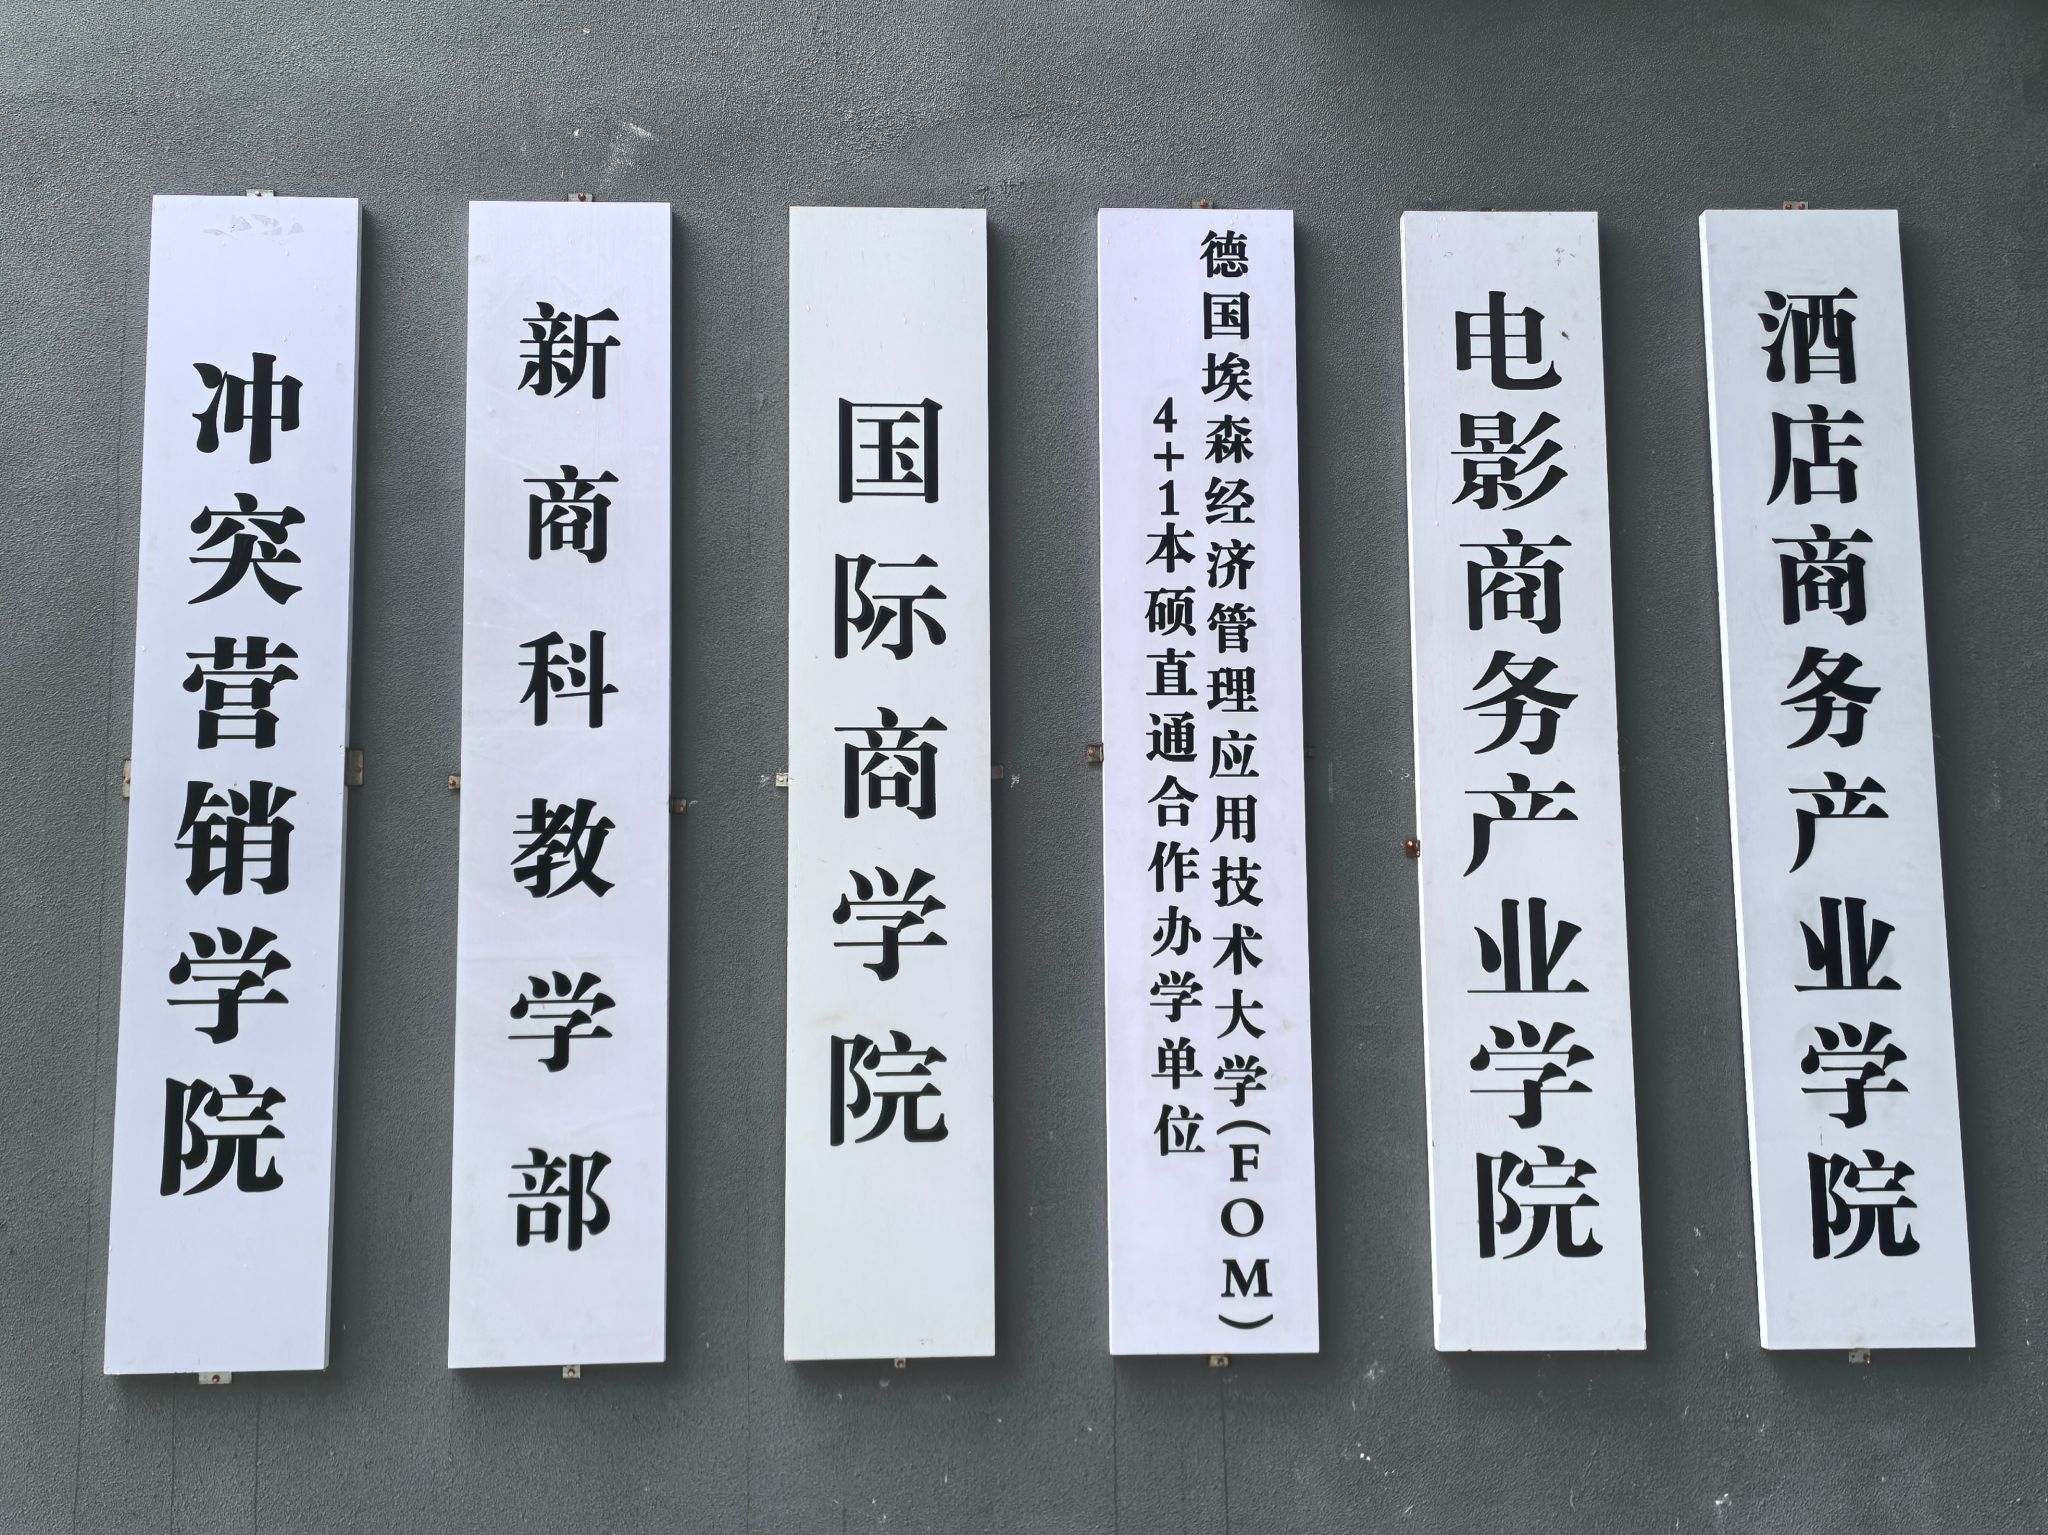 冲突营销学院
新商科教学部
国际商学院
德国埃森经济管理应用技术大学(FOM)
4+1本硕直通合作办学单位
电影商务产业学院
酒店商务产业学院